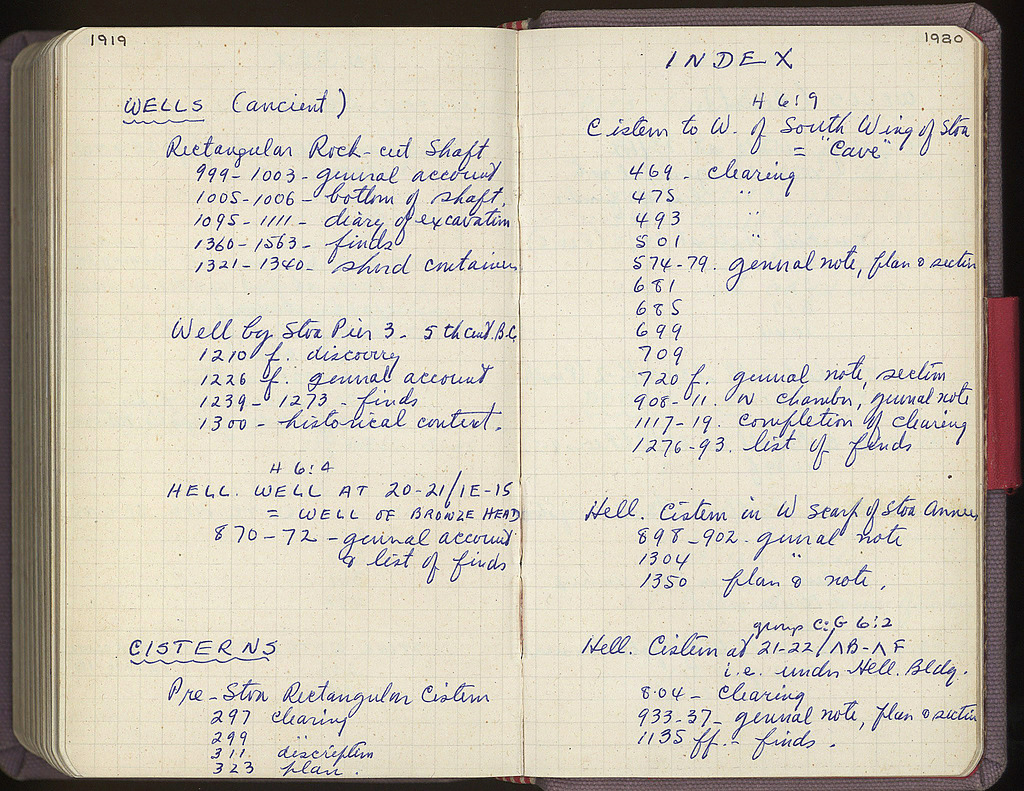 1919
WELLS (ancient)
Rectangular Rock-cut Shaft
999-1003 - general account
1005-1006 - bottom of shaft.
1095-1111 - diary of excavation
1360-1563 - finds
1321-1340 - sherd containers
Well by Stoa Pier 3. 5th cent. B.C.
1210 f. discovery
1226 f. general account
1239-1273 - finds
1300 - historical context.
H 6:4
HELL. WELL AT 20-21/IE-15
= WELL OF BRONZE HEAD
870-72 - general account
& list of finds
CISTERNS
Pre-Stoa Rectangular Cistern
297 clearing
299 "
311. discription
323 plan.
1920
INDEX
H 6:9
Cistern to W. of South Wing of Stoa
= "Cave"
469 - clearing
475 "
493 "
501 "
574-79. general note, plan & section
681
685
699
709
720 f. general note, section
908-11. W chamber, general note
1117-19. completion of clearing
1276-93. list of finds
Hell. Cistern in W scarp of Stoa Annex
898-902. general note
1304 "
1350 plan & note.
group C: G 6:2
Hell. Cistern at 21-22/ΛB-ΛF
i.e. under Hell. Bldg.
804 - clearing
933-37 - general note, plan & section
1135 ff. - finds.